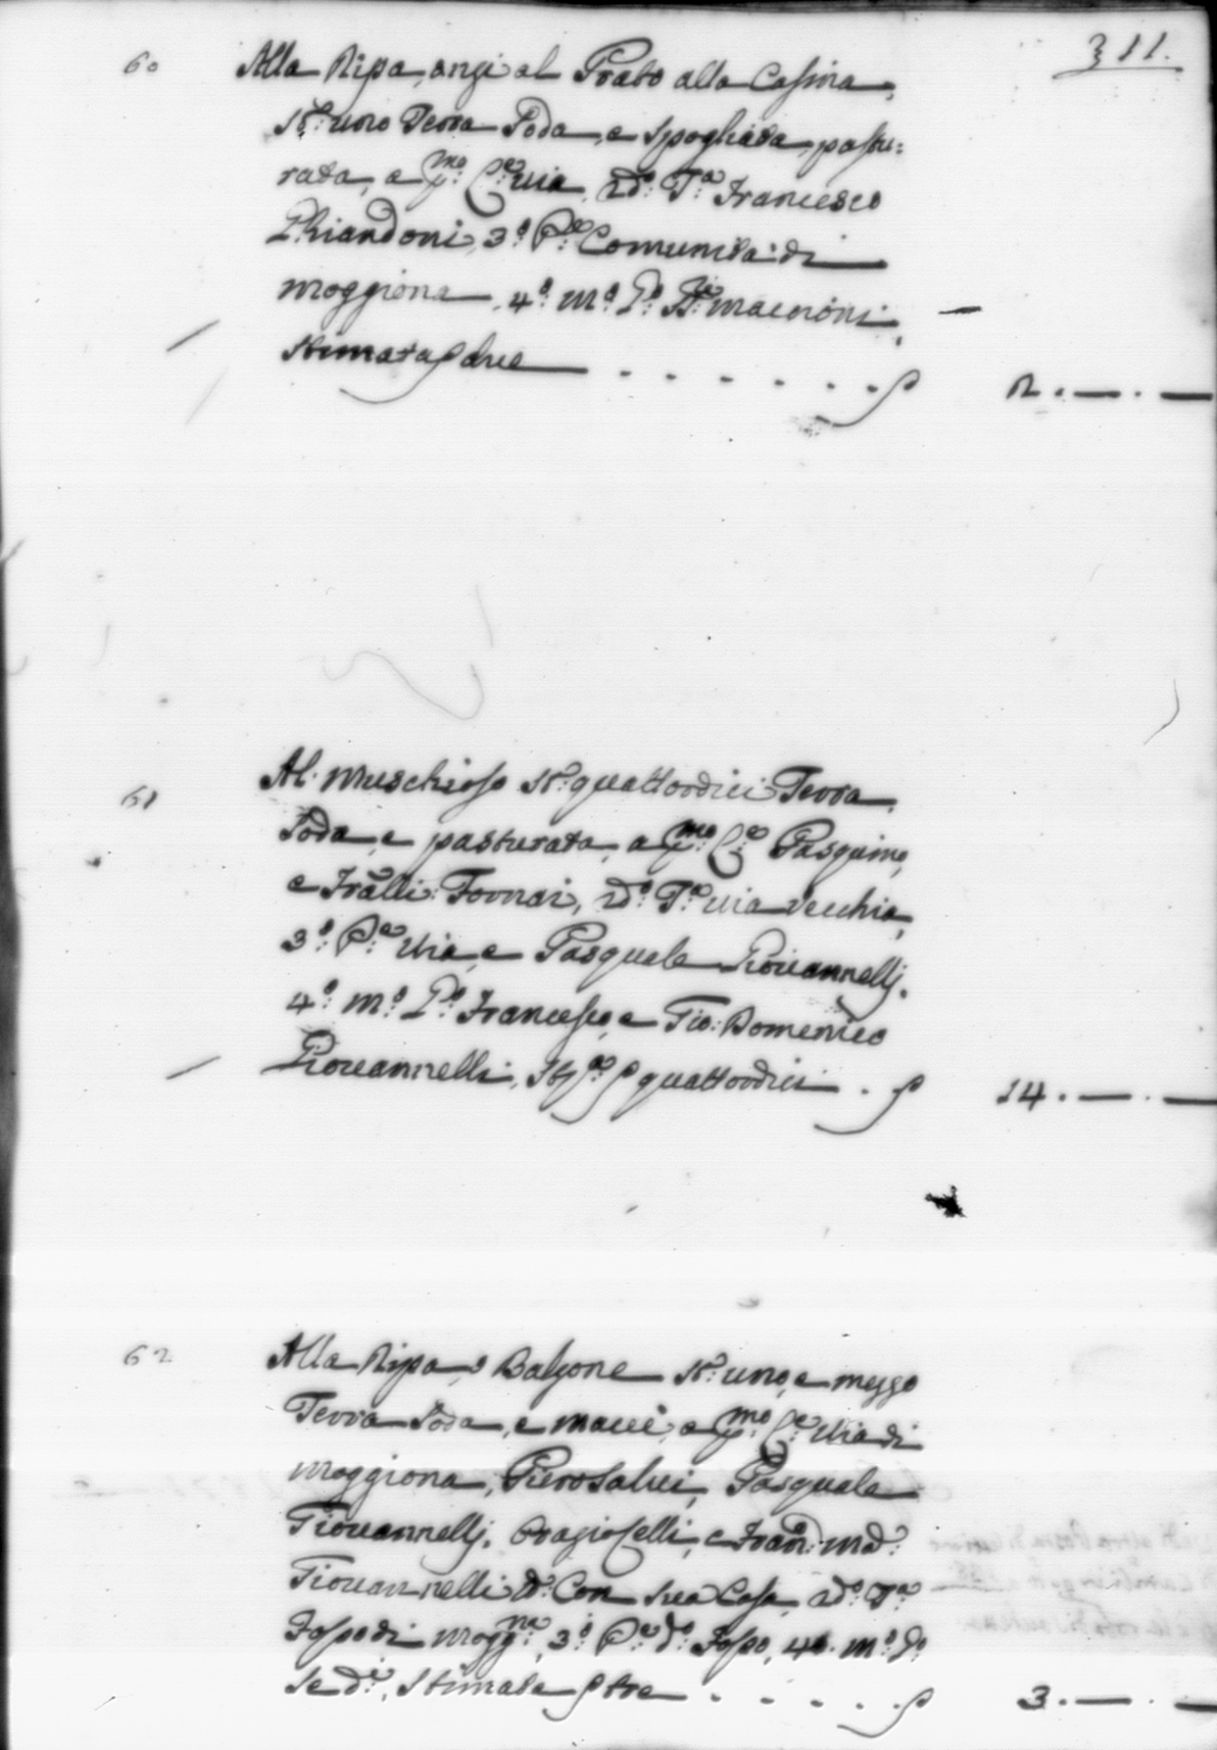 311.
60 Alla Ripa, anzi al Prato alla Casina,
st:o uno Terra Soda, e Spogliata, pastu:
rata, a p:mo C:e via, 2d:o T:a Francesco
Ghiandoni, 3:o P:e Comunità di
Moggiona, 4:o M:o G:o
Stimata p due . . . . . . p 2. — . —
61 Al Muschioso st:o quattordici Terra
Soda, e pasturata, a p:mo C:e Pasquino,
e Frālli Fornai, 2d:o T:a via Vecchia,
3:o P:e Via, e Pasquale Giovannelli.
4:o M:o G:o Francesco, e Gio: Domenico
Giovannelli, p quattordici . p 14. — . —
62 Alla Ripa, o Balzone st:o uno, e mezzo
Terra Soda, e a p:mo C:e Via di
Moggiona, Piero Salvi, Pasquale
Giovannelli,
Giovannelli d:o Con sua Casa, 2d:o T:a
Fosso di Mogg:na, 3:o P:e d:o Fosso, 4:o M:o G:o
Se d:o, Stimata p tre . . . . . p 3. — . —